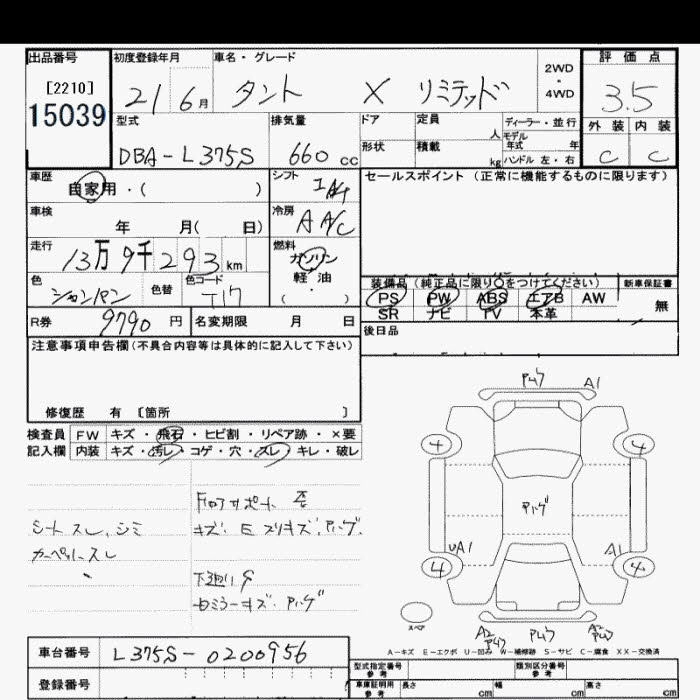 出品番号 初度登録年月 車名・グレード 2WD ・ 4WD 評価点
[2210]
15039 21 6月 タント X リミテッド 3.5
型式 排気量 ドア 定員 人 ディーラー・並行 外装 内装
モデル年式 年
DBA-L375S 660cc 形状 積載 kg ハンドル 左・右 C C
車歴 自家用・( ) シフト IAT セールスポイント(正常に機能するものに限ります)
車検 年 月( 日) 冷房 A A/C
走行 13万9千293km 燃料 ガソリン
軽油
( ・ )
色 シャンパン 色替 色コード T17
装備品(純正品に限り○をつけてください) 新車保証書
PS PW ABS エアB AW 無
SR ナビ TV 本革
R券 9790円 名変期限 月 日 後日品
注意事項申告欄(不具合内容等は具体的に記入して下さい)
修復歴 有 [箇所 ]
検査員 FW キズ・飛石・ヒビ割・リペア跡・×要
記入欄 内装 キズ・汚レ・コゲ・穴・スレ・キレ・破レ
A1
4 4
フロアサポート 歪
シートスレ、シミ
カーペットスレ
UA1 A1
4 4
下廻り
スペア
A2 A2
A-キズ E-エクボ U-凹み W-補修跡 S-サビ C-腐食 XX-交換済
車台番号 L375S-0200956
登録番号
型式指定番号 参考 類別区分番号 参考
車庫証明用 参考 長さ cm 幅 cm 高さ cm